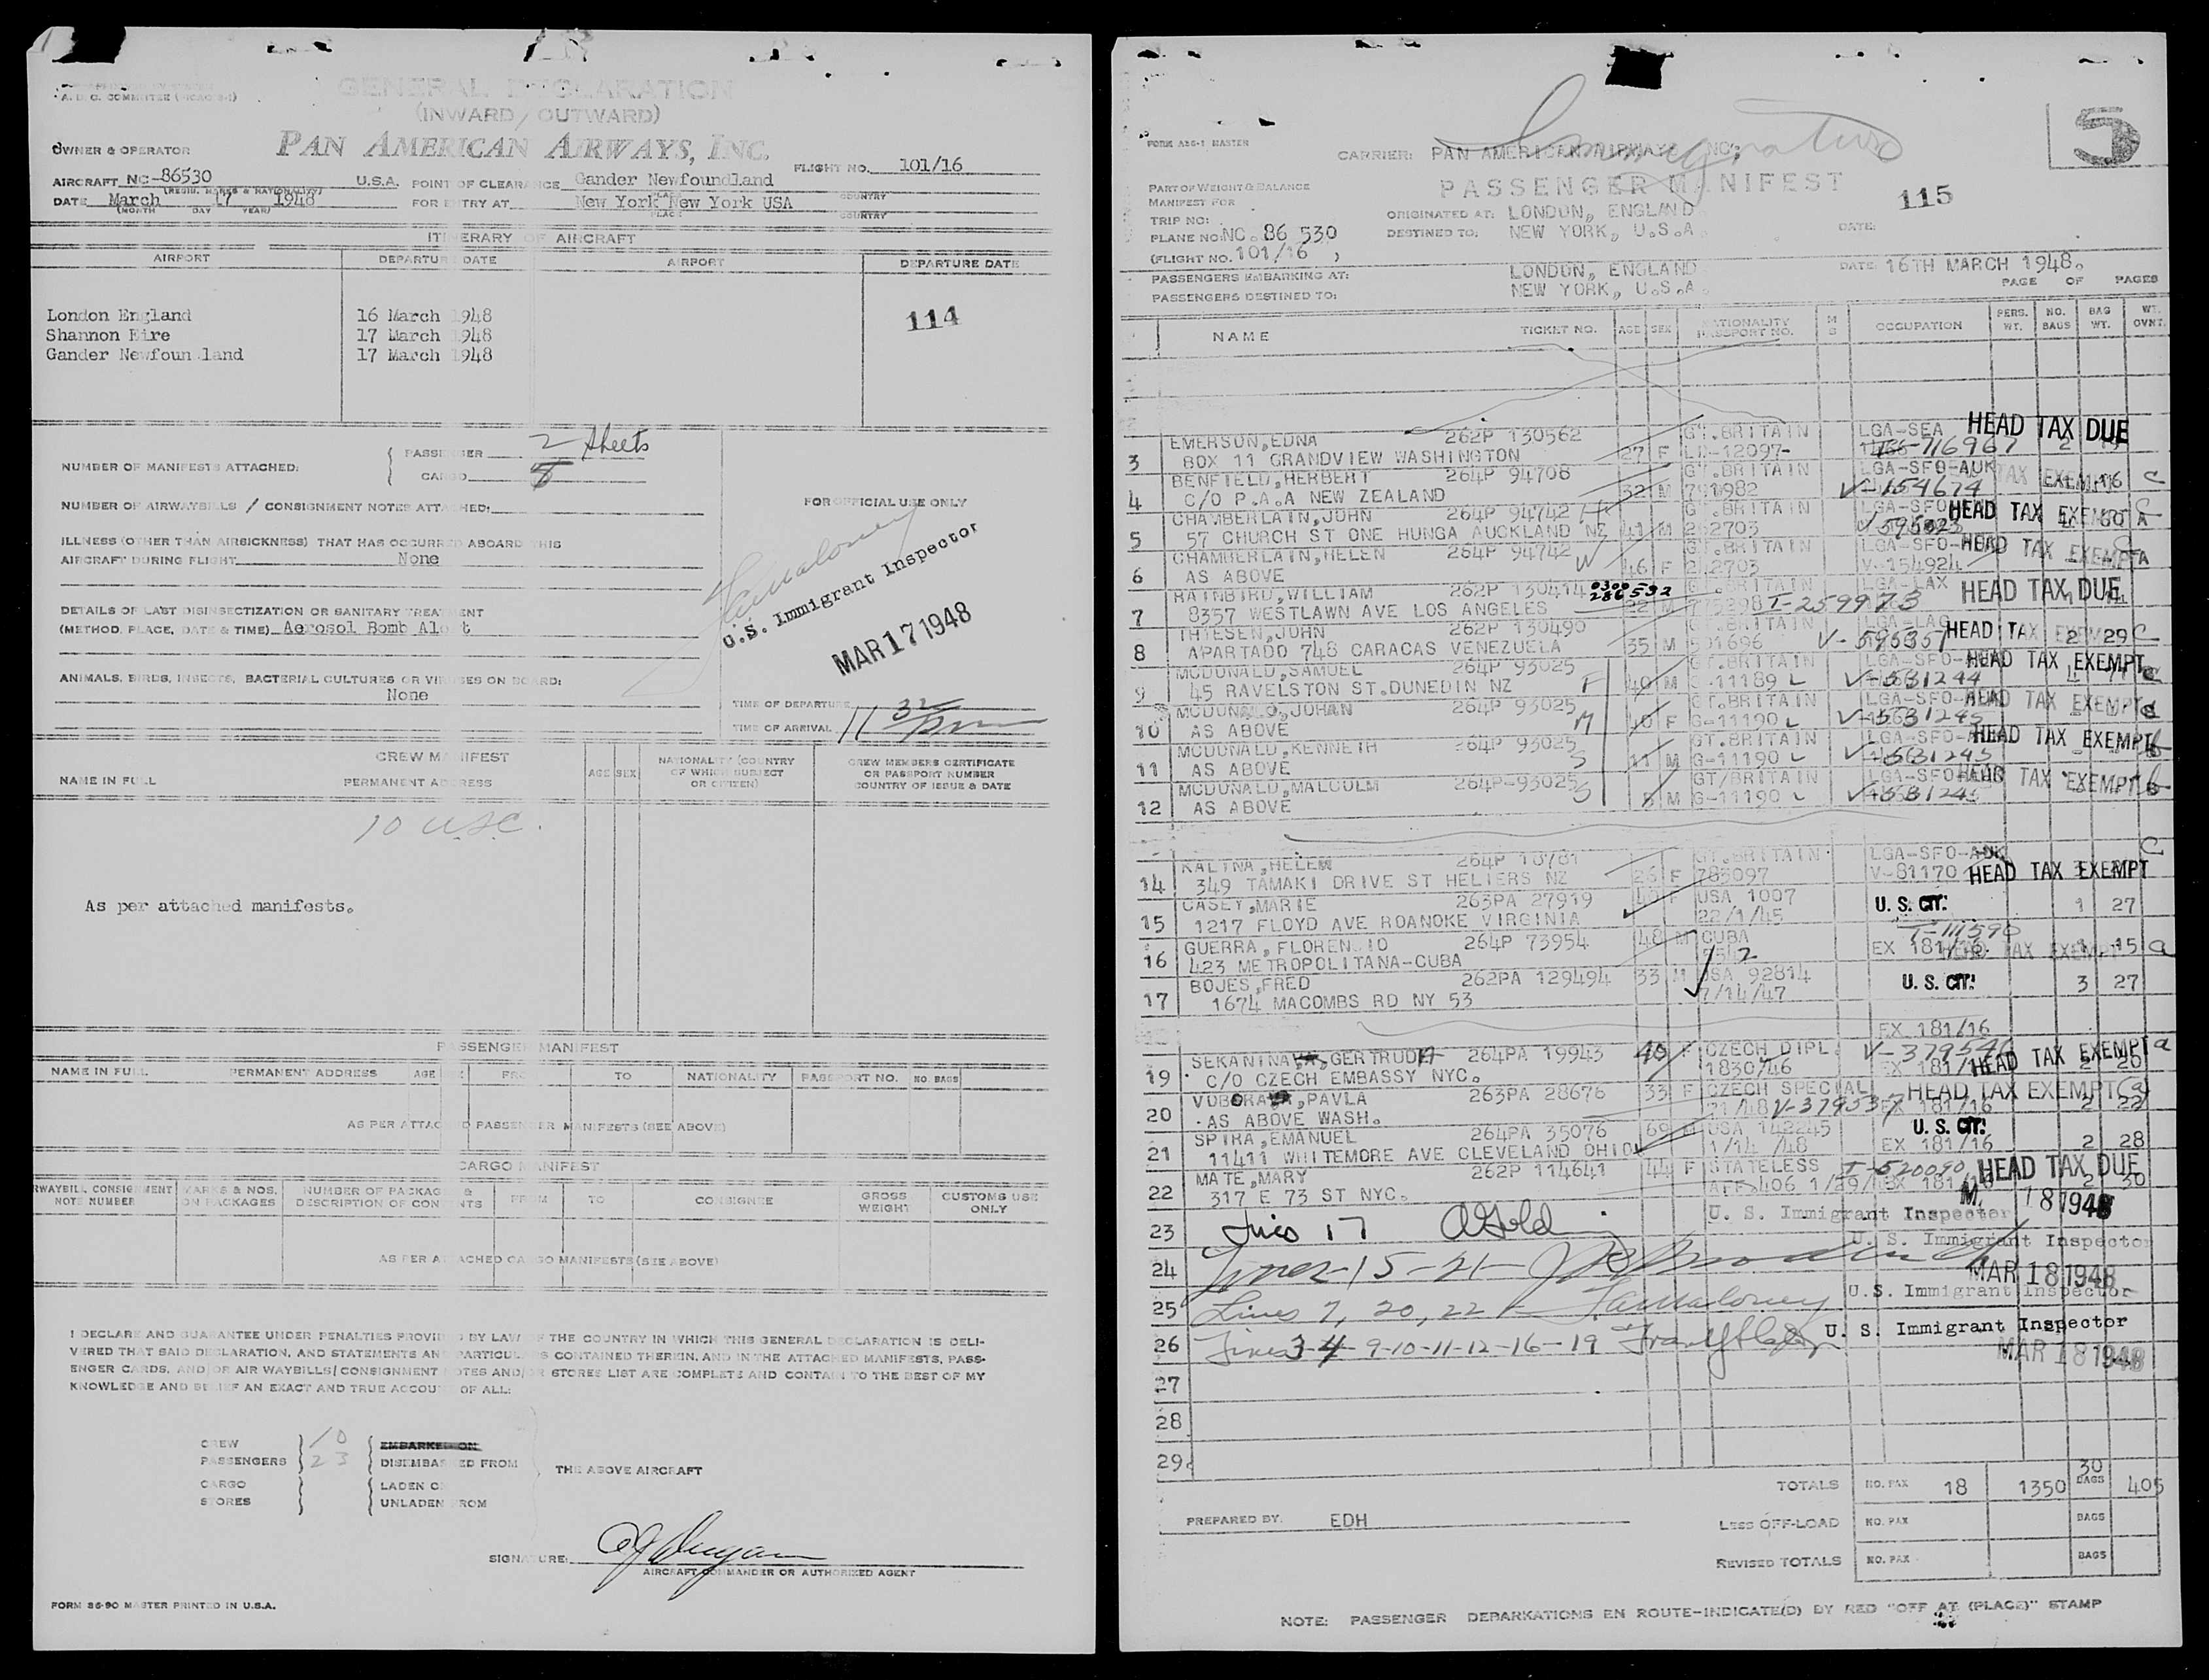 A. D. C. COMMITTEE
GENERAL DECLARATION
(INWARD / OUTWARD)
OWNER & OPERATOR PAN AMERICAN AIRWAYS, INC.
FLIGHT NO. 101/16
AIRCRAFT NC-86530 U.S.A. POINT OF CLEARANCE Gander Newfoundland
(REGIS. MARKS & NATIONALITY) PLACE COUNTRY
DATE March 17 1948 FOR ENTRY AT New York New York USA
(MONTH DAY YEAR) PLACE COUNTRY
ITINERARY OF AIRCRAFT
AIRPORT DEPARTURE DATE AIRPORT DEPARTURE DATE
London England 16 March 1948 114
Shannon Eire 17 March 1948
Gander Newfoundland 17 March 1948
NUMBER OF MANIFESTS ATTACHED: PASSENGER 2 sheets
CARGO 8
NUMBER OF AIRWAYBILLS / CONSIGNMENT NOTES ATTACHED:
FOR OFFICIAL USE ONLY
ILLNESS (OTHER THAN AIRSICKNESS) THAT HAS OCCURRED ABOARD THIS
AIRCRAFT DURING FLIGHT None
U.S. Immigrant Inspector
MAR 17 1948
DETAILS OF LAST DISINSECTIZATION OR SANITARY TREATMENT
(METHOD, PLACE, DATE & TIME) Aerosol Bomb Aloft
ANIMALS, BIRDS, INSECTS, BACTERIAL CULTURES OR VIRUSES ON BOARD:
None
TIME OF DEPARTURE
TIME OF ARRIVAL 11 32 pm
CREW MANIFEST
NAME IN FULL PERMANENT ADDRESS AGE SEX NATIONALITY (COUNTRY OF WHICH SUBJECT OR CITIZEN) CREW MEMBERS CERTIFICATE OR PASSPORT NUMBER COUNTRY OF ISSUE & DATE
10 USC.
As per attached manifests.
PASSENGER MANIFEST
NAME IN FULL PERMANENT ADDRESS AGE FROM TO NATIONALITY PASSPORT NO. NO. BAGS
AS PER ATTACHED PASSENGER MANIFESTS (SEE ABOVE)
CARGO MANIFEST
AIRWAYBILL CONSIGNMENT NOTE NUMBER MARKS & NOS. ON PACKAGES NUMBER OF PACKAGES & DESCRIPTION OF CONTENTS FROM TO CONSIGNEE GROSS WEIGHT CUSTOMS USE ONLY
AS PER ATTACHED CARGO MANIFESTS (SEE ABOVE)
I DECLARE AND GUARANTEE UNDER PENALTIES PROVIDED BY LAW OF THE COUNTRY IN WHICH THIS GENERAL DECLARATION IS DELI-
VERED THAT SAID DECLARATION, AND STATEMENTS AND PARTICULARS CONTAINED THEREIN, AND IN THE ATTACHED MANIFESTS, PASS-
ENGER CARDS, AND/OR AIR WAYBILLS/CONSIGNMENT NOTES AND/OR STORES LIST ARE COMPLETE AND CONTAIN TO THE BEST OF MY
KNOWLEDGE AND BELIEF AN EXACT AND TRUE ACCOUNT OF ALL:
CREW 10 EMBARKED ON
PASSENGERS 23 DISEMBARKED FROM THE ABOVE AIRCRAFT
CARGO LADEN ON
STORES UNLADEN FROM
SIGNATURE:
AIRCRAFT COMMANDER OR AUTHORIZED AGENT
FORM 86-90 MASTER PRINTED IN U.S.A.
5
FORM A86-1 MASTER
CARRIER: PAN AMERICAN AIRWAYS INC.
PART OF WEIGHT & BALANCE PASSENGER MANIFEST
MANIFEST FOR 115
TRIP NO: ORIGINATED AT: LONDON, ENGLAND
PLANE NO: NC. 86 530 DESTINED TO: NEW YORK, U.S.A. DATE:
(FLIGHT NO. 101/16 )
PASSENGERS EMBARKING AT: LONDON, ENGLAND DATE: 16TH MARCH 1948.
PASSENGERS DESTINED TO: NEW YORK, U.S.A. PAGE OF PAGES
NAME TICKET NO. AGE SEX NATIONALITY PASSPORT NO. OCCUPATION PERS. WT. NO. BAGS BAG WT. WT. OVNT.
3 EMERSON,EDNA 262P 130562 27 F GT.BRITAIN LGA-SEA HEAD TAX DUE
BOX 11 GRANDVIEW WASHINGTON 716967 2
4 BENFIELD,HERBERT 264P 94708 32 M GT.BRITAIN LGA-SFO-AUK TAX EXEMPT
C/O P.A.A NEW ZEALAND 791982 V-154674 C
5 CHAMBERLAIN,JOHN 264P 94742 H 41 M GT.BRITAIN LGA-SFO HEAD TAX EXEMPT
57 CHURCH ST ONE HUNGA AUCKLAND NZ 262703 A
6 CHAMBERLAIN,HELEN 264P 94742 W 46 F GT.BRITAIN LGA-SFO HEAD TAX EXEMPT
AS ABOVE V-154924 A
7 RAINBIRD,WILLIAM 262P 130414 0300 286592 22 M GT.BRITAIN LGA-LAX HEAD TAX DUE
8357 WESTLAWN AVE LOS ANGELES 775298 T-259973
8 THIESEN,JOHN 262P 130490 35 M GT.BRITAIN HEAD TAX EXEMPT
APARTADO 748 CARACAS VENEZUELA 501696 V-595351 2 29 C
9 MCDONALD,SAMUEL 264P 93025 F 40 M GT.BRITAIN LGA-SFO HEAD TAX EXEMPT
45 RAVELSTON ST.DUNEDIN NZ G-11189 L V-531244
10 MCDONALD,JOHAN 264P 93025 M 40 F GT.BRITAIN LGA-SFO HEAD TAX EXEMPT
AS ABOVE G-11190 L V-531245
11 MCDONALD,KENNETH 264P 93025 S 11 M GT.BRITAIN LGA-SFO HEAD TAX EXEMPT
AS ABOVE G-11190 L V-531245
12 MCDONALD,MALCOLM 264P-93025 S M GT/BRITAIN LGA-SFO HEAD TAX EXEMPT
AS ABOVE G-11190 L V-531245
14 KALINA,HELEN 264P 18781 26 F GT.BRITAIN LGA-SFO-AUK C
349 TAMAKI DRIVE ST HELIERS NZ 785097 V-81170 HEAD TAX EXEMPT
15 CASEY,MARIE 263PA 27919 F USA 1007 U. S. CIT. 1 27
1217 FLOYD AVE ROANOKE VIRGINIA 22/1/45
16 GUERRA, FLORENCIO 264P 73954 48 M CUBA EX 181/16 HEAD TAX EXEMPT 15 a
423 METROPOLITANA-CUBA
17 BOJES,FRED 262PA 129494 33 M USA 92814 U. S. CIT. 3 27
1674 MACOMBS RD NY 53 7/14/47
EX 181/16
19 SEKANINA, GERTRUDA 264PA 19943 40 F CZECH DIPL. HEAD TAX EXEMPT a
C/O CZECH EMBASSY NYC. 1830/46 EX 181/16 2 20
20 VOBORA, PAVLA 263PA 28676 33 F CZECH SPECIAL HEAD TAX EXEMPT
AS ABOVE WASH. 71/48 V-379537 EX 181/16 2 22
21 SPIRA,EMANUEL 264PA 35076 69 M USA 142245 U. S. CIT.
11411 WHITEMORE AVE CLEVELAND OHIO 1/14 /48 EX 181/16 2 28
22 MATE,MARY 262P 114641 44 F STATELESS T-520090 HEAD TAX DUE
317 E 73 ST NYC. AFF.406 1/29/48 EX 181/16 2 30
23 U. S. Immigrant Inspector 18 1948
24 Lines 15-21 U. S. Immigrant Inspector
MAR 18 1948
25 Lines 7, 20, 22 U.S. Immigrant Inspector
26 Lines 3-4-9-10-11-12-16-19 U. S. Immigrant Inspector
MAR 18 1948
27
28
29
TOTALS NO. PAX 18 1350 30 BAGS 405
PREPARED BY: EDH LESS OFF-LOAD NO. PAX BAGS
REVISED TOTALS NO. PAX BAGS
NOTE: PASSENGER DEBARKATIONS EN ROUTE-INDICATE(D) BY RED "OFF AT (PLACE)" STAMP